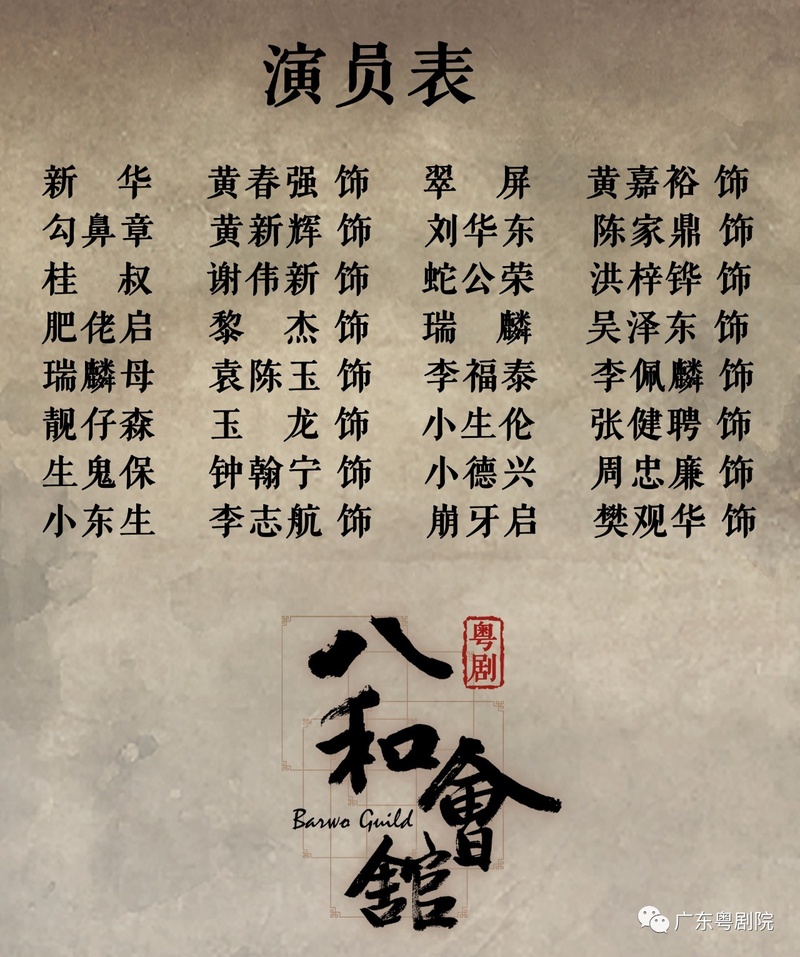 演员表
新华 黄春强 饰 翠屏 黄嘉裕 饰
勾鼻章 黄新辉 饰 刘华东 陈家鼎 饰
桂叔 谢伟新 饰 蛇公荣 洪梓铧 饰
肥佬启 黎杰 饰 瑞麟 吴泽东 饰
瑞麟母 袁陈玉 饰 李福泰 李佩麟 饰
靓仔森 玉龙 饰 小生伦 张健聘 饰
生鬼保 钟翰宁 饰 小德兴 周忠廉 饰
小东生 李志航 饰 崩牙启 樊观华 饰
粤剧
八和會館
Barwo Guild
广东粤剧院